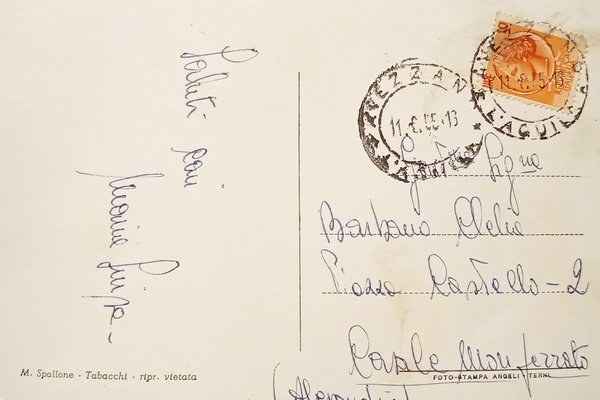 Saluti
cari
Maria Luisa -
M. Spallone - Tabacchi - ripr. vietata
AVEZZANO
11.6.55.13
L'AQUILA
AVEZZANO
11.6.55.13
L'AQUILA
Gent. Sigra
Barbano Clelia
Piazza Castello - 2
Casale Monferrato
FOTO-STAMPA ANGELI - TERNI
(Alessandria)